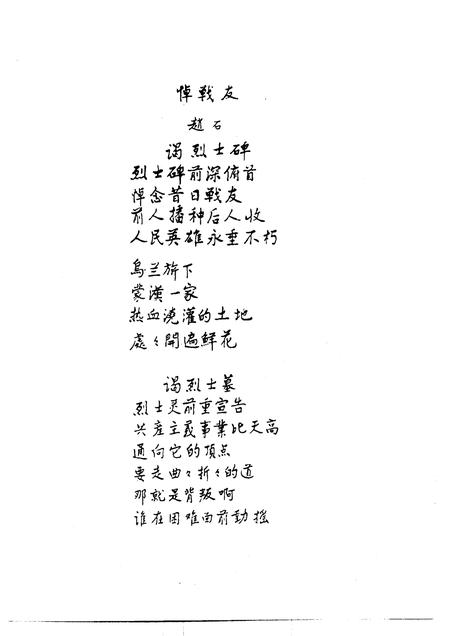 悼戰友
趙石
謁烈士碑
烈士碑前深俯首
悼念昔日戰友
前人播种后人收
人民英雄永垂不朽
烏兰旂下
蒙漢一家
热血澆灌的土地
處々開遍鮮花
謁烈士墓
烈士灵前重宣告
共產主義事業比天高
通向它的頂点
要走曲々折々的道
那就是背叛啊
谁在困难面前动摇